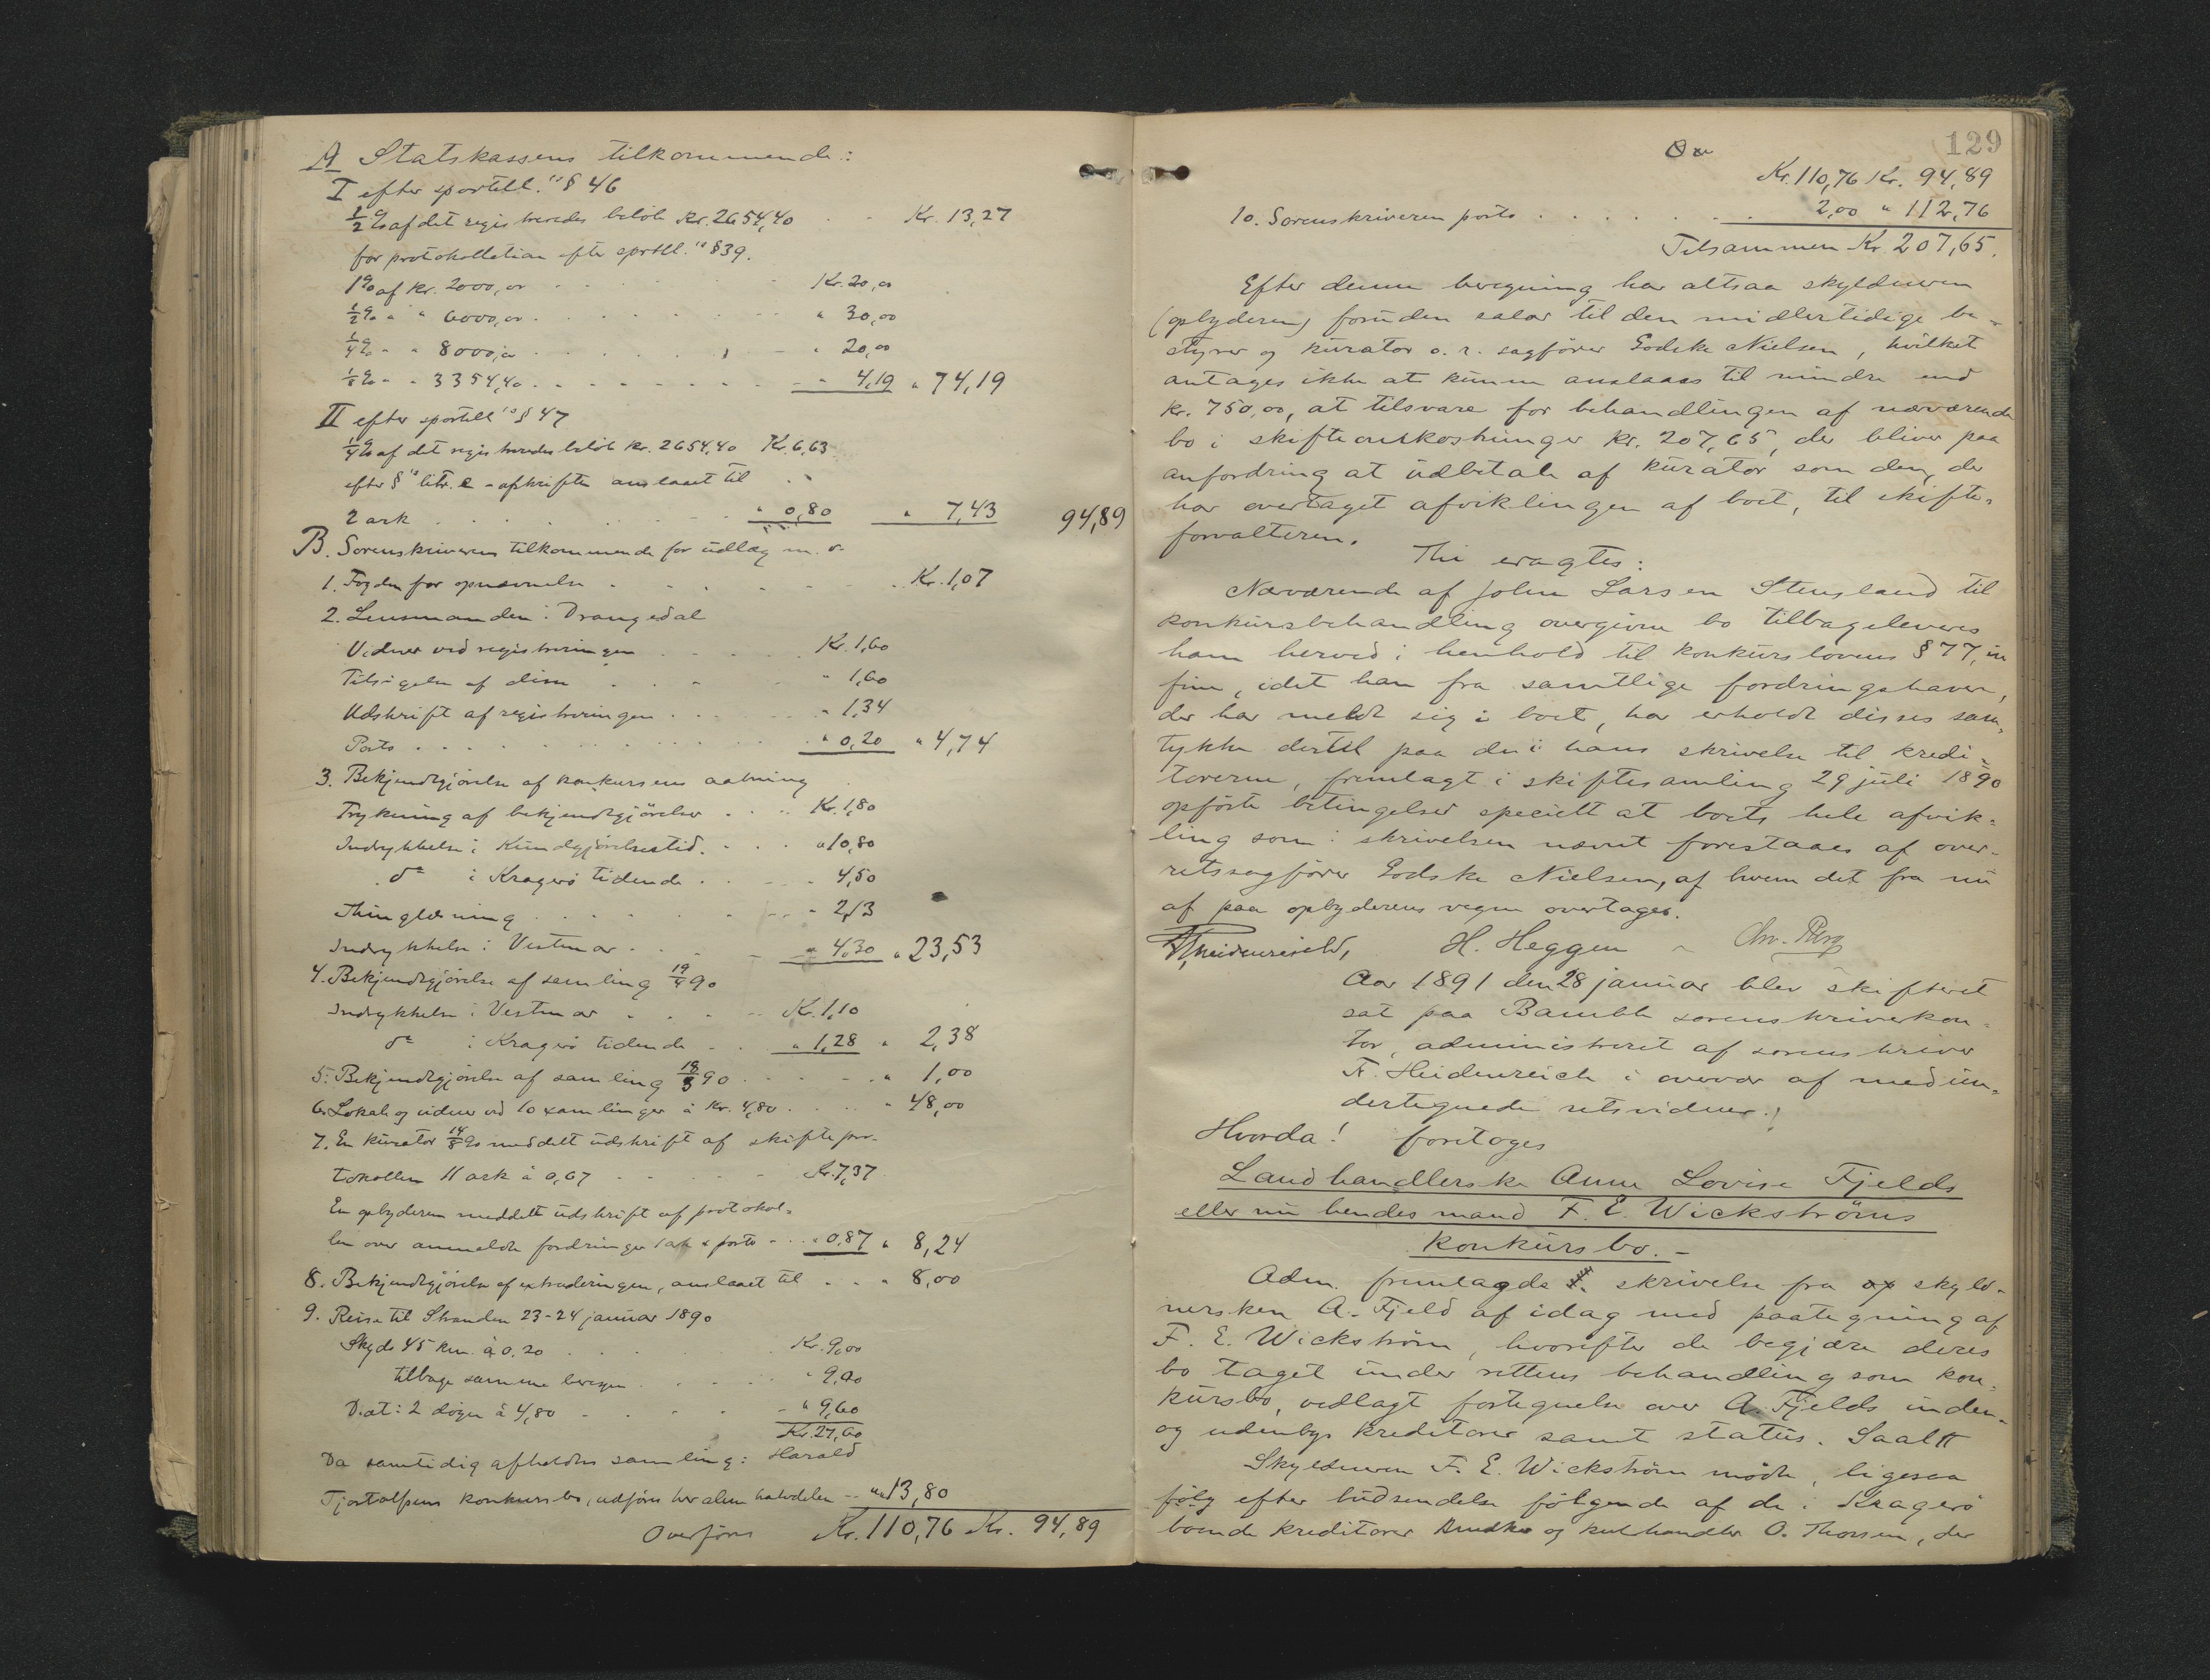 A Statskassens tilkommende:
I efter sportell." § 46
1/2 % af det registrerede belöb Kr. 2654,40 . . Kr. 13,27
for protokollation efter sportll." § 39.
1 % af kr. 2000,00 . . . Kr. 20,00
1/2 % " " 6000,00 . . . " 30,00
1/4 % " " 8000,00 . . . " 20,00
1/8 % " " 3354,40 . . . " 4,19 " 74,19
II efter sportell " § 47
1/4 % af det registrerede belöb kr. 2654,40 Kr. 6,63
efter § " litr. e - afskrifter anslaaet til
2 ark . . . " 0,80 " 7,43 94,89
B. Sorenskriverens tilkommende for udlæg m. v.
1. Fogden for opnævnelse . . . Kr. 1,07
2. Lensmanden i Drangedal
Vidner ved registreringen . . . Kr. 1,60
Tilsigelse af disse . . . " 1,60
Udskrift af registreringen . . . " 1,34
Porto . . . " 0,20 " 4,74
3. Bekjendtgjörelse af konkursens aabning
Trykning af bekjendtgjörelser . . . Kr. 1,80
Indrykkelse i Kundgjörelsestid. . . . " 10,80
do i Kragerö tidende . . . " 4,50
Thinglæsning . . . " 2,13
Indrykkelse i Vestmar . . . " 4,30 " 23,53
4. Bekjendtgjörelse af samling 19/4 90
Indrykkelse i Vestmar . . . Kr. 1,10
do i Kragerö tidende . . " 1,28 " 2,38
5. Bekjendtgjörelse af samling 18/8 90 . . . " 1,00
6. Lokale og vidner ved 10 samlinger à Kr. 4,80 . . . " 48,00
7. En kurator 14/8 90 meddelt udskrift af skiftepro-
tokollen 11 ark à 0,67 . . . Kr. 7,37
En opbyderen meddelt udskrift af protokol-
len over anmeldte fordringer 1 ark & porto - . . " 0,87 " 8,24
8. Bekjendtgjörelse af extraderingen, anslaaet til . . . " 8,00
9. Reise til Stranden 23-24 januar 1890
Skyds 45 km. à 0.20 . . . Kr. 9,00
tilbage samme beregn. . . . " 9,00
Diæt: 2 dögn à 4,80 - . . . " 9,60
Kr. 27,60
Da samtidig afholdtes samling i Harald
Tjostolfsens konkursbo, udföres her alene halvdelen - " 13,80
Overföres Kr. 110,76 Kr. 94,89
129
Kr. 110,76 Kr. 94,89
10. Sorenskriveren porto . . . 2,00 " 112,76
Tilsammen Kr. 207,65.
Efter denne beregning har altsaa skyldneren
(opbyderen) foruden salær til den midlertidige be-
styrer og kurator o. r. sagförer Godske Nielsen, hvilket
antages ikke at kunne anslaaes til mindre end
kr. 750,00, at tilsvare for behandlingen af nærværende
bo i skifteomkostninger kr. 207,65, der bliver paa
anfordring at udbetale af kurator som den, der
har overtaget afviklingen af boet, til skifte-
forvalteren.
Thi eragtes:
Nærværende af John Larsen Stensland til
konkursbehandling overgivne bo tilbageleveres
ham herved i henhold til konkurslovens § 77, in
fine, idet han fra samtlige fordringshavere,
der har meldt sig i boet, har erholdt disses sam-
tykke dertil paa de i hans skrivelse til kredi-
torerne, fremlagt i skiftesamling 29 juli 1890
opförte betingelser specielt at boets hele afvik-
ling som i skrivelsen nævnt forestaaes af over-
retssagförer Godske Nielsen, af hvem det fra nu
af paa opbyderens vegne overtages.
F. Heidenreich, H. Heggen Chr. Berg
Aar 1891 den 28 januar blev skifteret
sat paa Bamble sorenskriverkon-
tor, administreret af sorenskriver
F. Heidenreich i overvær af medun-
dertegnede retsvidner.
Hvorda! foretoges
Landhandlerske Anne Lovise Fjelds
eller nu hendes mand F. E. Wickströms
Konkursbo. -
Adm. fremlagde skrivelse fra skyld-
nersken A. Fjeld af idag med paategning af
F. E. Wickström, hvorefter de begjære deres
bo taget under rettens behandling som kon-
kursbo, vedlagt fortegnelse over A. Fjelds inden-
og udenbys kreditorer samt status. Saalt
Skyldneren F. E. Wickström mödte, ligesaa
fölg efter budsendelse fölgende af de i Kragerö
boende kreditorer og kulhandler O. Thorsen, der